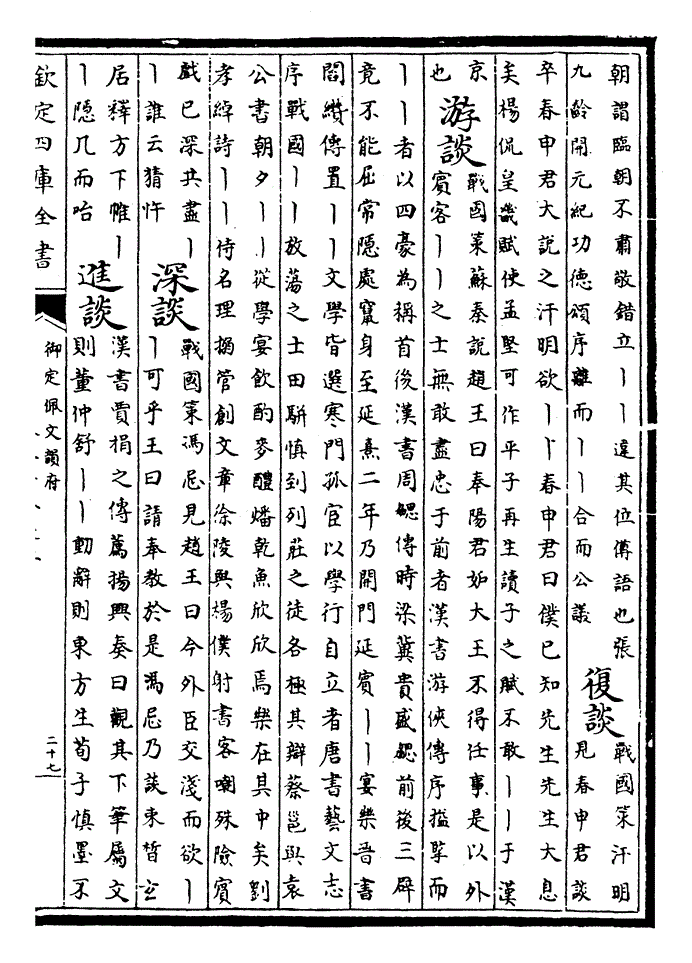 朝謂臨朝不肅敬錯立丨丨違其位傳語也張
九齡開元紀功德頌序離而丨丨合而公議
復談
戰國策汗明
見春申君談
卒春申君大說之汗明欲丨丨春申君曰僕已知先生先生大息
矣楊侃皇畿賦使孟堅可作平子再生讀子之賦不敢丨丨于漢
京
也
游談
戰國策蘇秦說趙王曰奉陽君妬大王不得任事是以外
賓客丨丨之士無敢盡忠于前者漢書游俠傳序搤掔而
丨丨者以四豪為稱首後漢書周勰傳時梁冀貴盛勰前後三辟
竟不能屈常隱處竄身至延熹二年乃開門延賓丨丨宴樂晉書
閻纘傳置丨丨文學皆選寒門孤宦以學行自立者唐書藝文志
序戰國丨丨放蕩之士田駢慎到列莊之徒各極其辯蔡邕與袁
公書朝夕丨丨從學宴飲酌麥醴燔乾魚欣欣焉樂在其中矣劉
孝綽詩丨丨侍名理搦管創文章徐陵與楊僕射書客嘲殊險賓
戲已深共盡丨
丨誰云猜忤
深談
戰國策馮忌見趙王曰今外臣交淺而欲丨
丨可乎王曰請奉教於是馮忌乃談束皙玄
居釋方下帷丨
丨隱几而咍
進談
漢書賈捐之傳薦揚興奏曰觀其下筆屬文
則董仲舒丨丨動辭則東方生荀子慎墨不
欽定四庫全書
御定佩文韻府
二十七